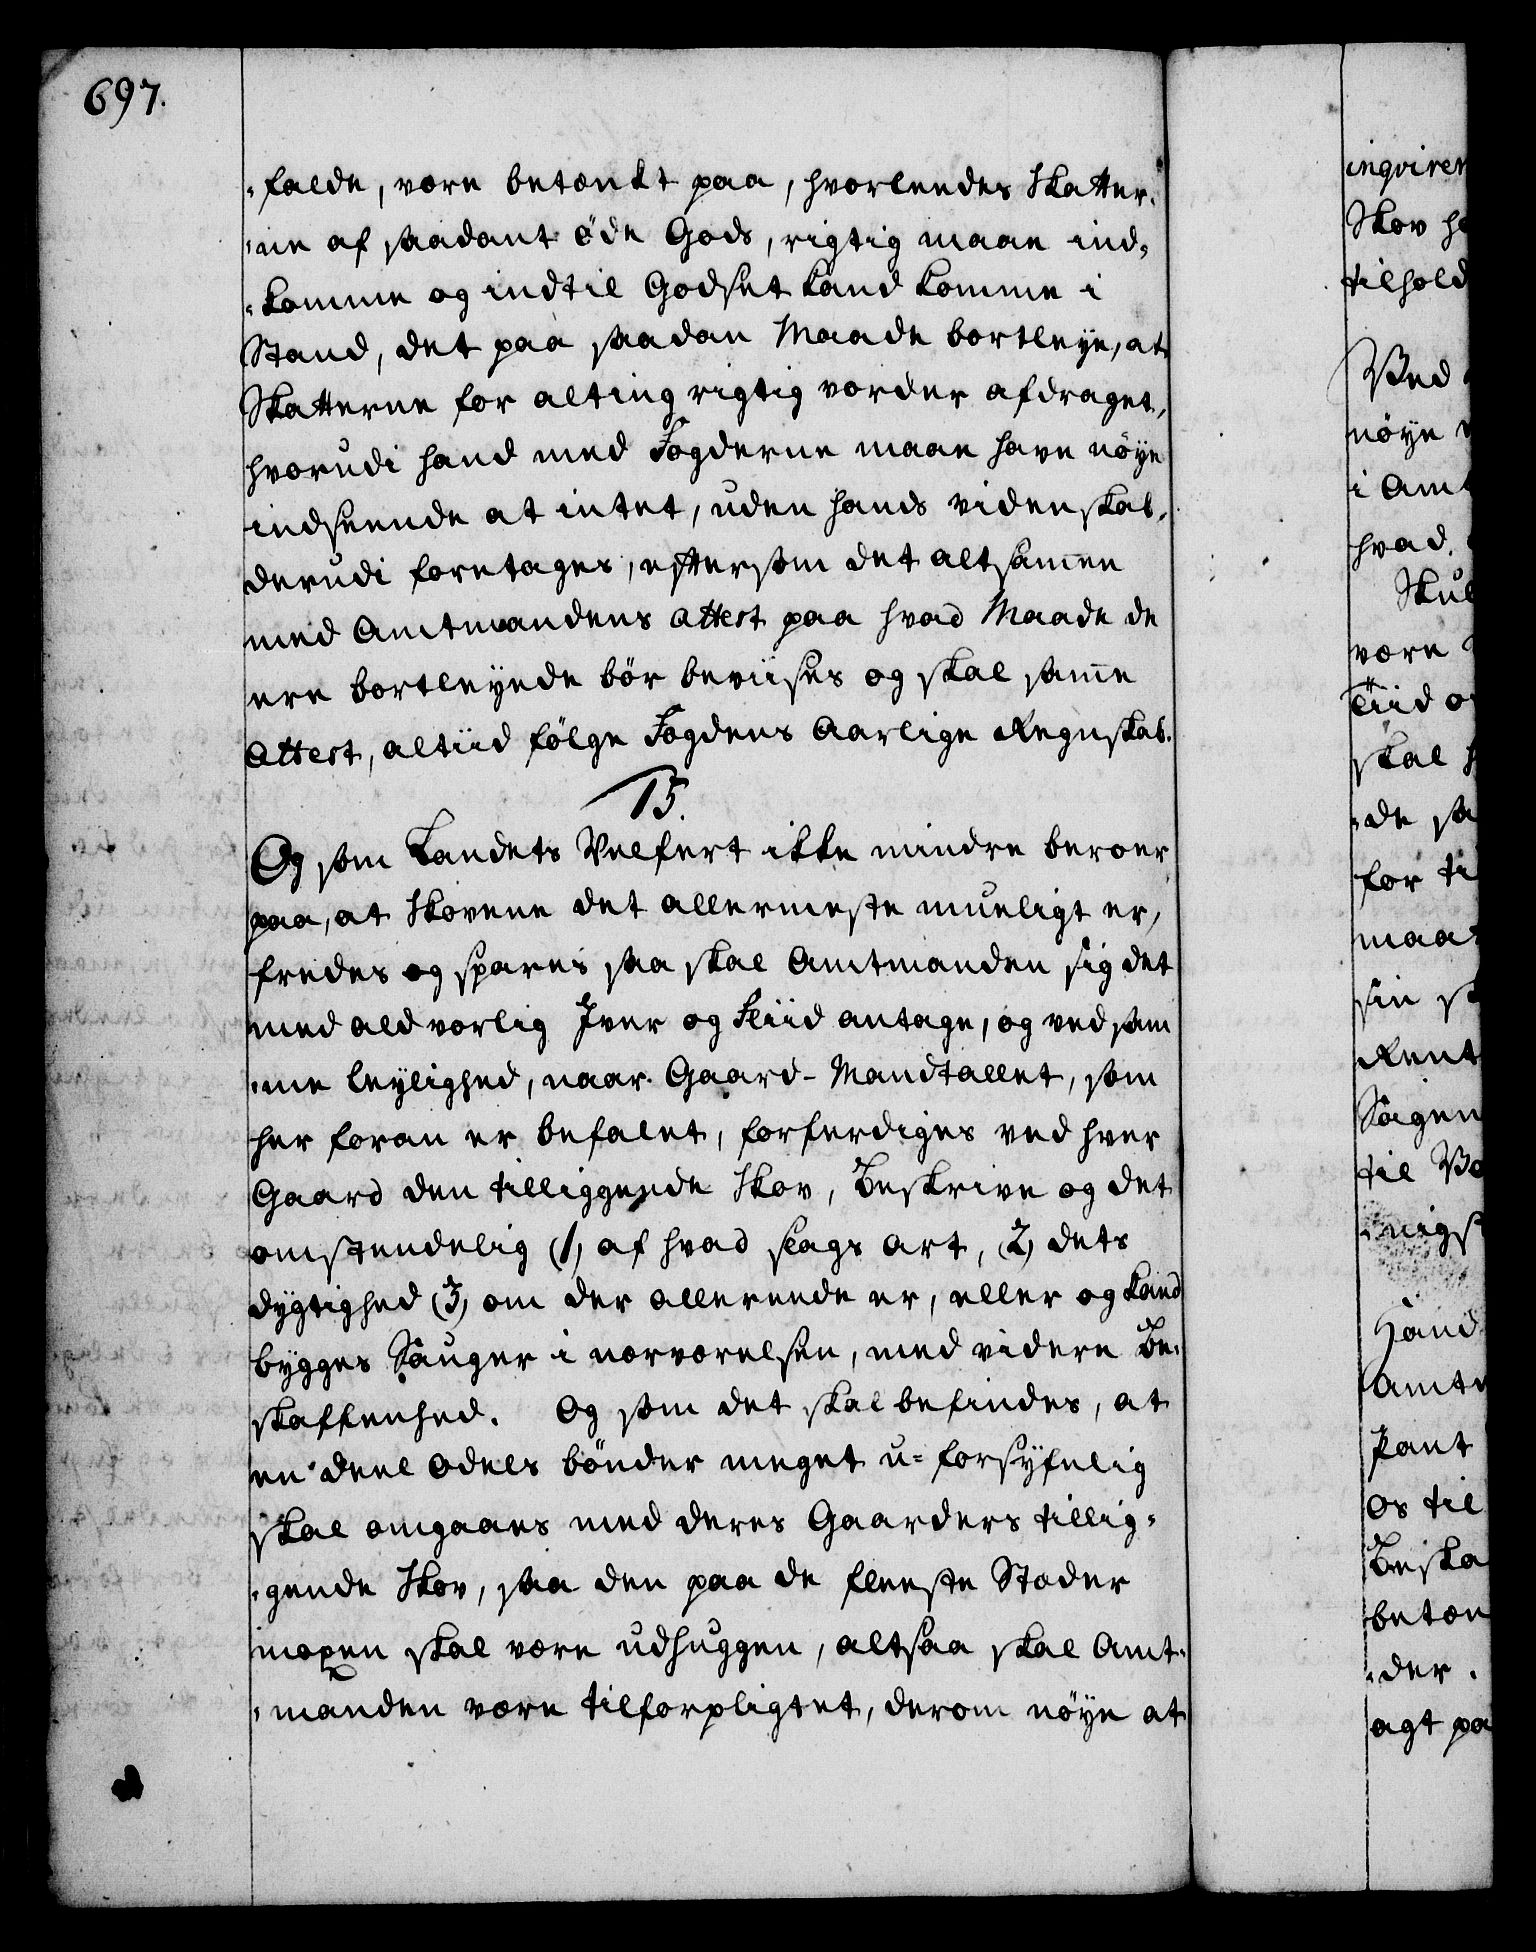 697.
-falde, være betænkt paa, hvorleedes Skatter-
-ne af saadant öde Gods, rigtig maae ind-
-komme og indtil Godset kand komme i
Stand, det paa saadan Maade bortleye, at
Skatterne for alting rigtig vorder afdraget,
hvorudi hand med Fogderne maae have nöye
indseende at intet, uden hands videnskab,
derudi foretages, eftersom det altsam̅en
med Amtmandens attest paa hvad Maade de
ere bortleyede bör beviises og skal sam̅e
Attest, altiid fölge Fogdens Aarlige Regnskab.
15.
Og som Landets Velfert ikke mindre beroer
paa, at Skovene det allermeste mueligt er,
fredes og spares saa skal Amtmanden sig det
med aldvorlig Iver og Fliid antage, og ved sam
-me leylighed, naar Gaard-Mandtallet, som
her foran er befalet, forferdiges ved hver
Gaard den tilliggende Skov, Beskrive og det
omstendelig (1) af hvad slags art, (2) dets
dygtighed (3) om der allereede er, eller og kand
bygges Sauger i nærværelsen, med videre Be-
skaffenhed. Og som det skal befindes, at
en deel Odels bönder meget u-forsyfelig
skal omgaaes med deres Gaarders tillig-
-gende Skov, saa den paa de fleeste Stæder
mexen skal være udhuggen, altsaa skal Amt-
-manden være tilforpligtet, derom nöye at
inqvirer
Skov
tilhold
Ved
nöye
i Amt
hvad
være
Tiid
skal
-de
for
maa
sin
Rent
Sagen
til
Hand
Amt
Pant
Os til
Beska
betæn
-der
agt pa